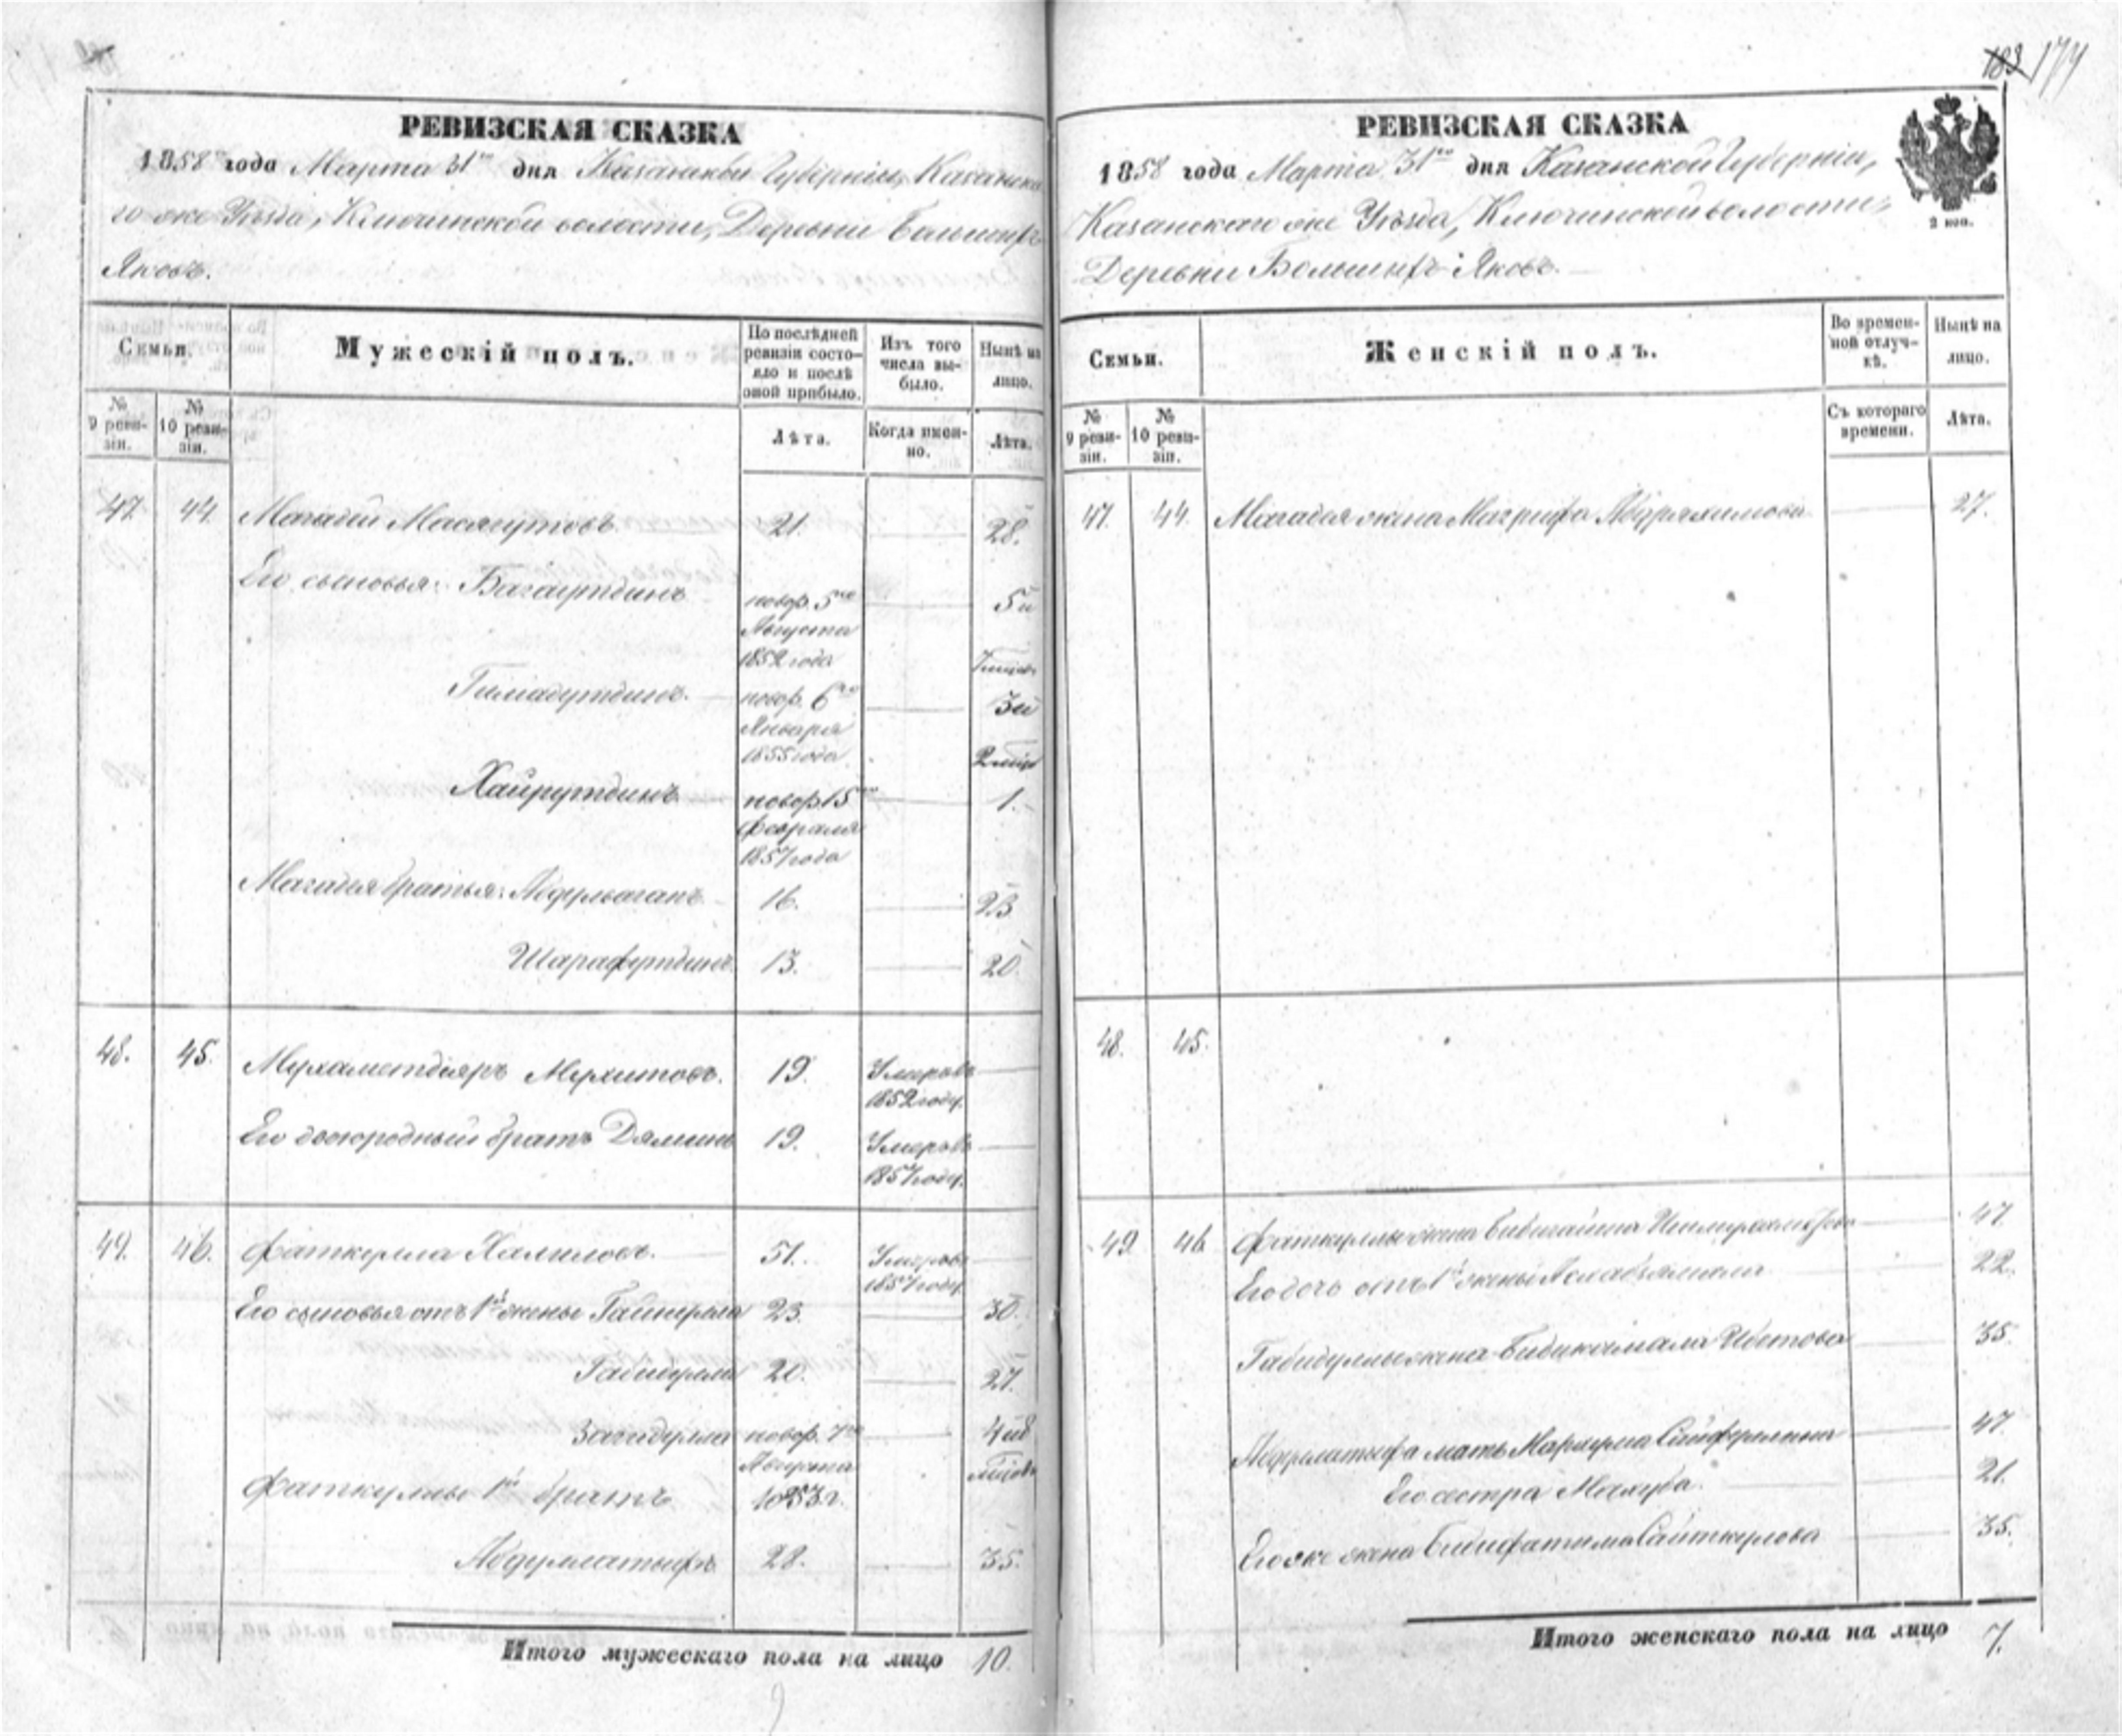 183 174
РЕВИЗСКАЯ СКАЗКА
1858го года Марта 31го дня Казанской Губерніи, Казанска
го же Уѣзда, Ключинской волости, Деревни Большихъ
Яковъ.
Семьи.
Мужескій полъ.
По послѣдней ревизіи состояло и послѣ оной прибыло.
Изъ того числа выбыло.
Нынѣ на лицо.
№ 9 ревизіи.
№ 10 ревизіи.
Лѣта.
Когда именно.
Лѣта.
47. 44. Магадей Масягутовъ. 21. 28.
Его сыновья: Багаутдинъ новор. 5го Августа 1852 года 5 и 7 мѣсяц.
Гимадутдинъ. новор. 6го Января 1855 года 3 и 2 мѣся
Хайрутдинъ новор. 15го Февраля 1857 года 1.
Магадея братья: Абдульваганъ 16. 23
Шарафутдинъ. 13. 20
48. 45. Мухаметдіяръ Мухитовъ. 19. Умеръ въ 1852 году.
Его двоюродный братъ Дяминъ 19. Умеръ въ 1857 году.
49. 46. Фаткулла Халиловъ. 51. Умеръ въ 1857 году
Его сыновья отъ 1й жены Гайнулла 23. 30.
Габидулла 20. 27.
Загидулла новор. 7го Августа 1853 г. 4 и 8 мѣсяцевъ
Фаткуллы 1й братъ
Абдуллатыфъ 28. 35.
Итого мужескаго пола на лицо 10.
РЕВИЗСКАЯ СКАЗКА
1858 года Марта 31го дня Казанской Губерніи,
Казанскаго же Уѣзда, Ключинской волости,
Деревни Большихъ Яковъ.
2 коп.
Семьи.
Женскій полъ.
Во временной отлучкѣ.
Нынѣ на лицо.
№ 9 ревизіи.
№ 10 ревизіи.
Съ котораго времени.
Лѣта.
47. 44. Магадея жена Магрифа Абдряхимова 27.
48. 45.
49. 46. Фаткуллы жена 47.
Его дочь отъ 1й жены 22.
Габидуллы жена Бибикамала 35.
Абдуллатыфа мать Маркума Сайфуллина 47.
Его сестра Махуба. 21.
Его же жена Бибифатима Сайткулова 35.
Итого женскаго пола на лицо 7.